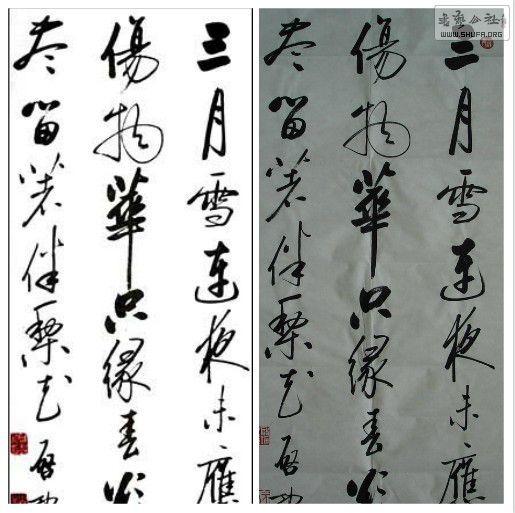 三月雪連夜未應
傷物華只緣春欲
尽留著伴梨花 啓功
書藝公社
WWW.SHUFA.ORG
三月雪連夜未應
傷物華只緣春欲
尽留著伴梨花 啓功